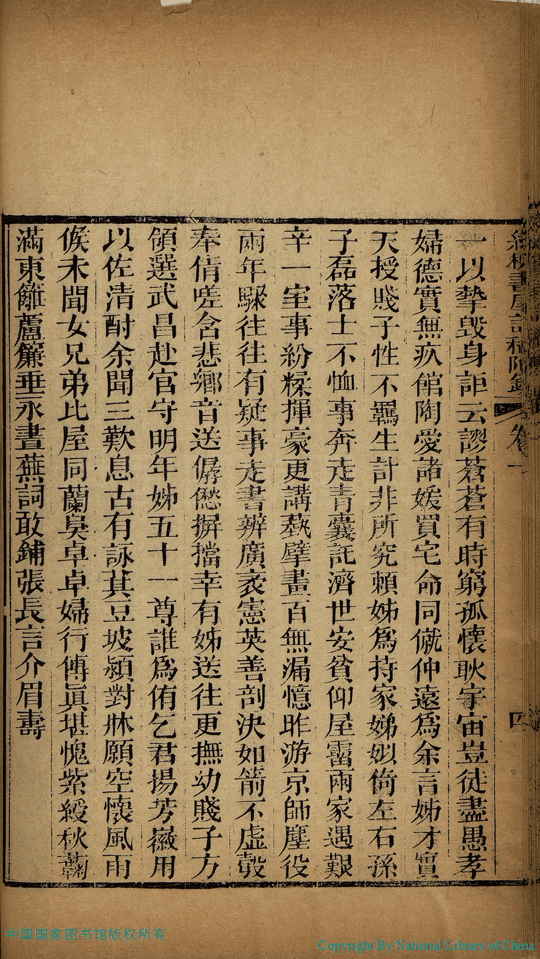 一以摯毀身詎云謬蒼蒼有時窮孤懷耿宇宙豈徒盡愚孝
婦德實無疚館陶愛諸媛買宅命同僦仲遠為余言姊才實
天授賤子性不羈生計非所究賴姊為持家娣姒倚左右孫
子磊落士不恤事奔走青囊託濟世安貧仰屋霤兩家遇艱
辛一室事紛糅揮豪更講藝擘畫百無漏憶昨游京師塵役
兩年驟往往有疑事走書辨廣袤憲英善剖決如箭不虛彀
奉倩嗟含悲鄉音送僝僽摒擋幸有姊送往更撫幼賤子方
領選武昌赴官守明年姊五十一尊誰為侑乞君揚芳徽用
以佐清酎余聞三歎息古有詠萁豆坡潁對牀願空懷風雨
候未聞女兄弟比屋同蘭臭卓卓婦行傳眞堪愧紫綬秋蘜
滿東籬蘆簾垂永晝蕪詞敢鋪張長言介眉壽
卷一
四
中国国家图书馆版权所有
Copyright By National Library of China